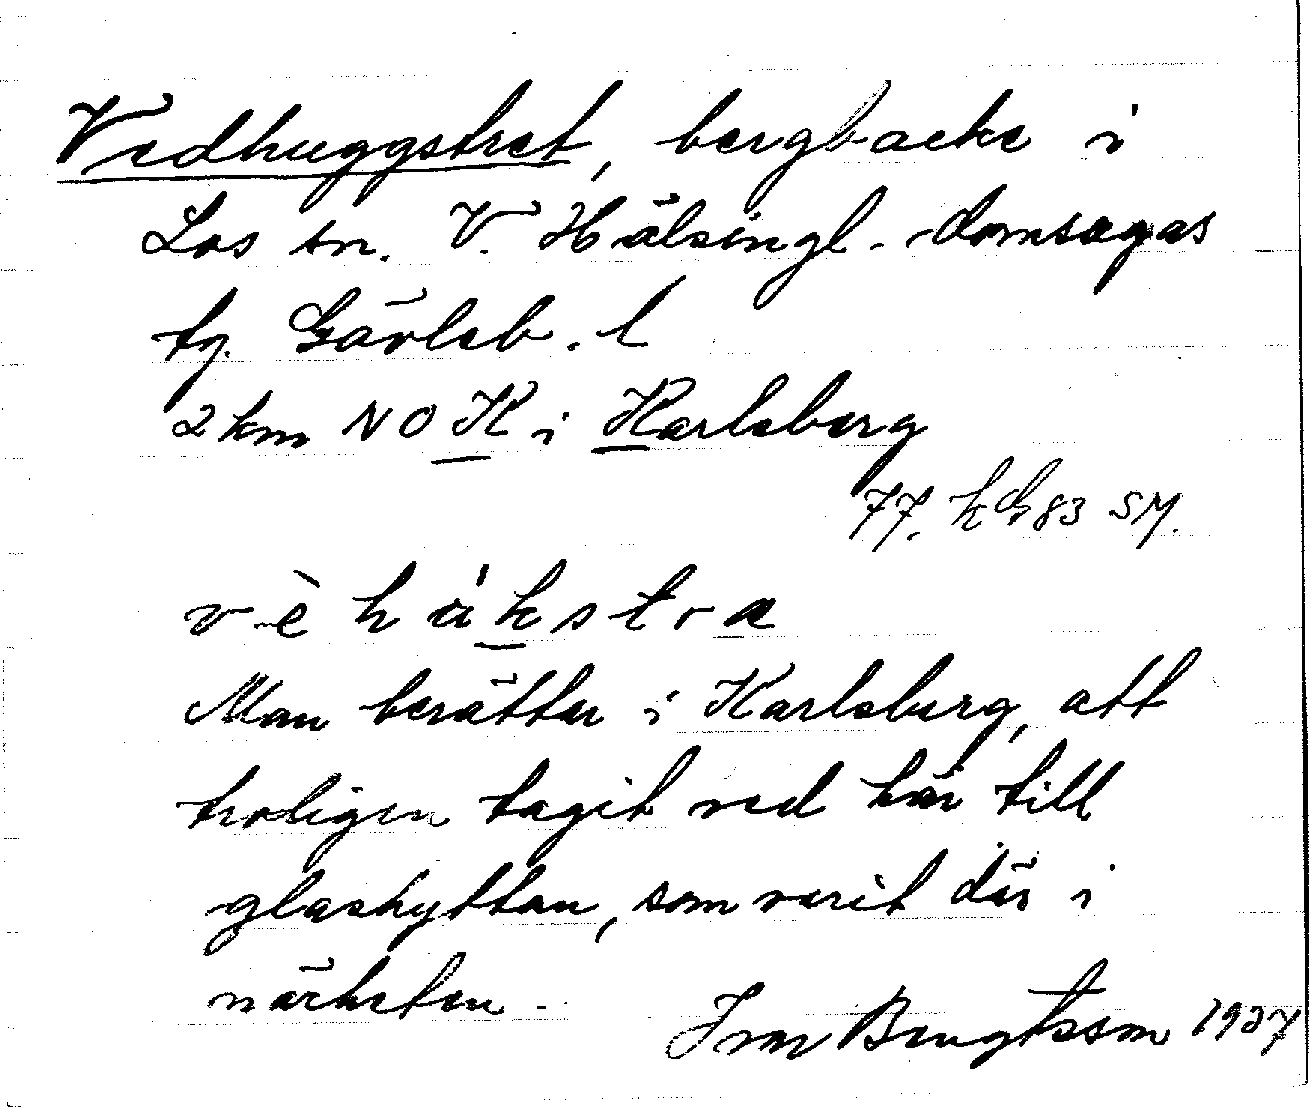 Vedhuggstret, bergbacke i
Los sn. V. Hälsingl. domsagas
tg. Gävleb. l
2 km NO K i Karlsberg
77. kG 83 SM.
vèhúkstra
Man berättar i Karlsberg, att
troligen tagit ved här till
glashyttan, som varit där i
närheten.
Ivar Bengtsson 1937